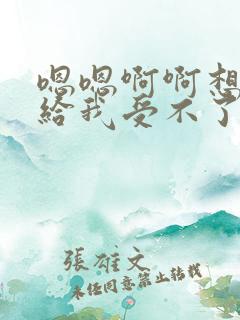 嗯嗯啊啊想
给我受不了
張雄文
未经同意禁止转载